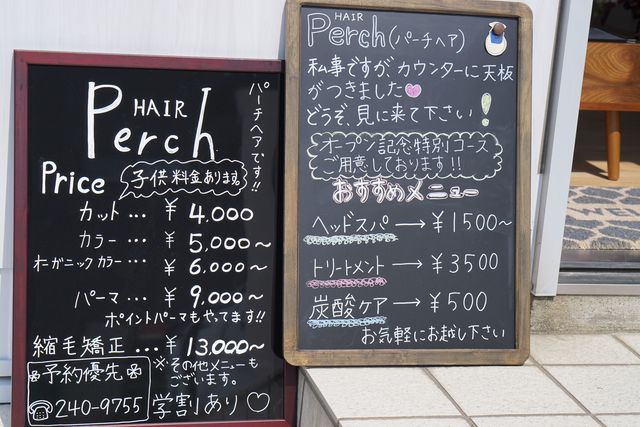 HAIR
Perch
パーチヘアです!!
Price
子供料金あります。
カット… ¥ 4.000
カラー… ¥ 5,000〜
オーガニックカラー… ¥ 6,000〜
パーマ… ¥ 9,000〜
ポイントパーマもやってます!!
縮毛矯正… ¥ 13,000〜
※その他メニューも
ございます。
予約優先
☎240-9755
学割あり♡
HAIR
Perch(パーチヘア)
私事ですが、カウンターに天板
がつきました♥
どうぞ、見に来て下さい!
オープン記念特別コース
ご用意しております!!
おすすめメニュー
ヘッドスパ→¥1500〜
トリートメント→¥3500
炭酸ケア→¥500
お気軽にお越し下さい